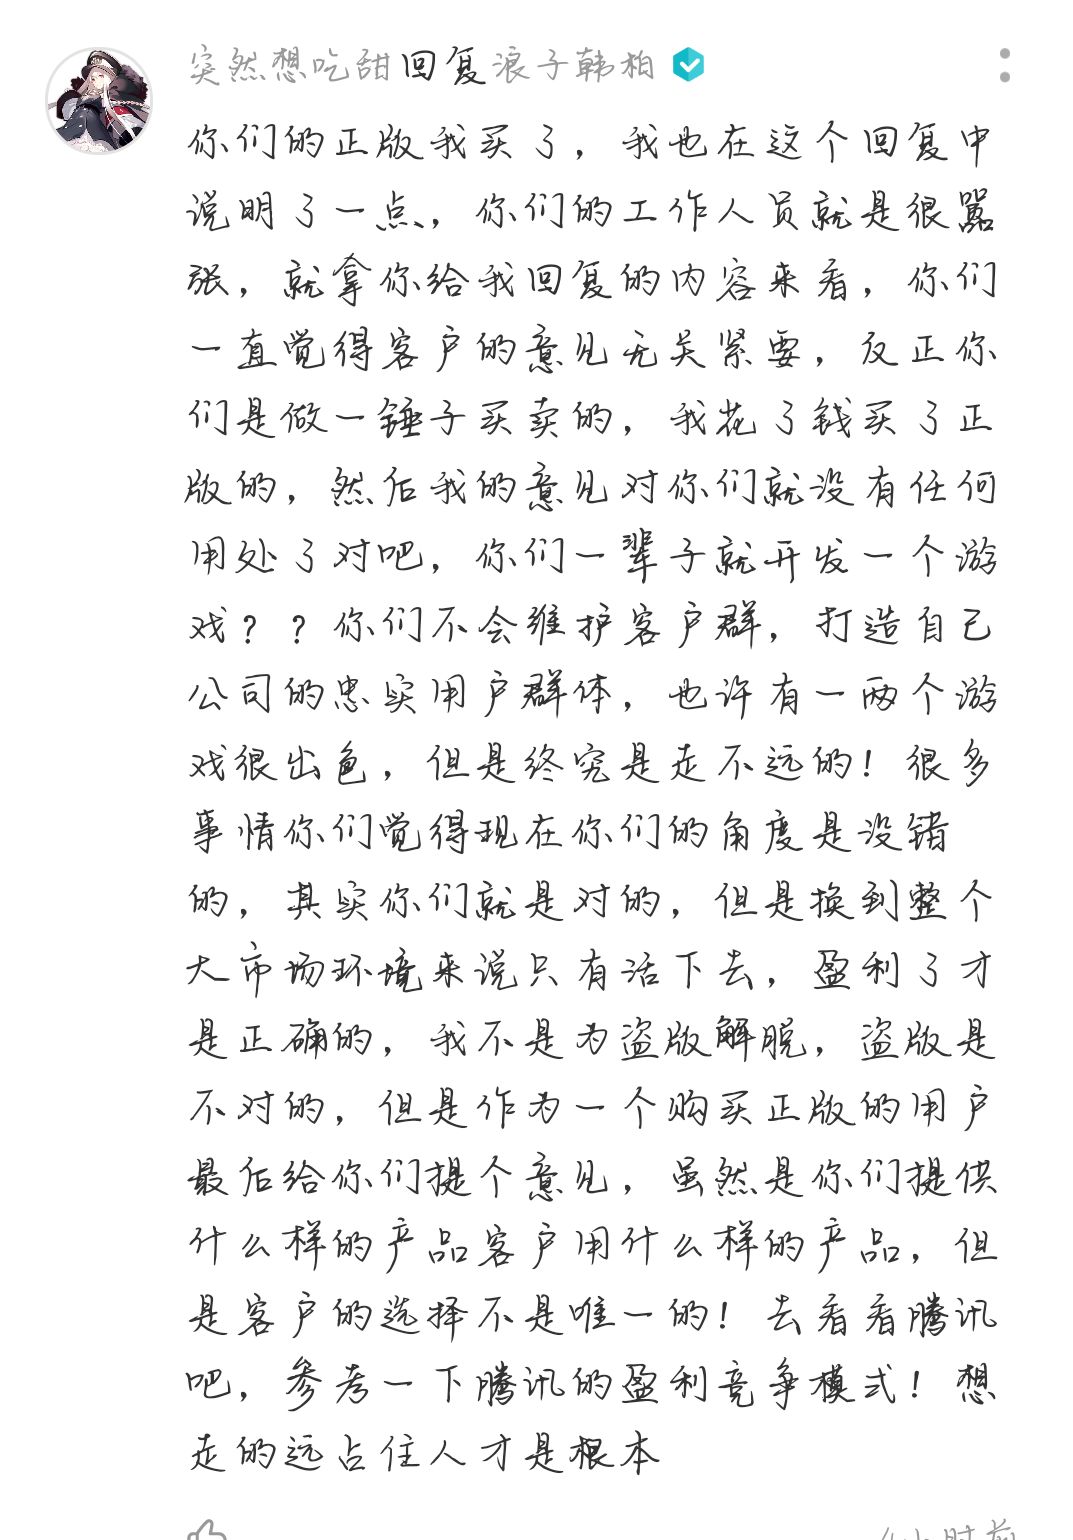 突然想吃甜回复浪子韩柏
你们的正版我买了，我也在这个回复中
说明了一点，你们的工作人员就是很嚣
张，就拿你给我回复的内容来看，你们
一直觉得客户的意见无关紧要，反正你
们是做一锤子买卖的，我花了钱买了正
版的，然后我的意见对你们就没有任何
用处了对吧，你们一辈子就开发一个游
戏？？你们不会维护客户群，打造自己
公司的忠实用户群体，也许有一两个游
戏很出色，但是终究是走不远的！很多
事情你们觉得现在你们的角度是没错
的，其实你们就是对的，但是换到整个
大市场环境来说只有活下去，盈利了才
是正确的，我不是为盗版解脱，盗版是
不对的，但是作为一个购买正版的用户
最后给你们提个意见，虽然是你们提供
什么样的产品客户用什么样的产品，但
是客户的选择不是唯一的！去看看腾讯
吧，参考一下腾讯的盈利竞争模式！想
走的远占住人才是根本